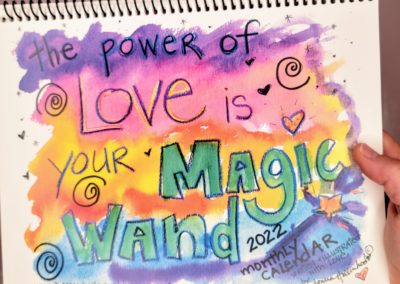 the power of
Love is
your Magic
Wand
2022
monthly
CALENDAR
ILLUSTRATED
by